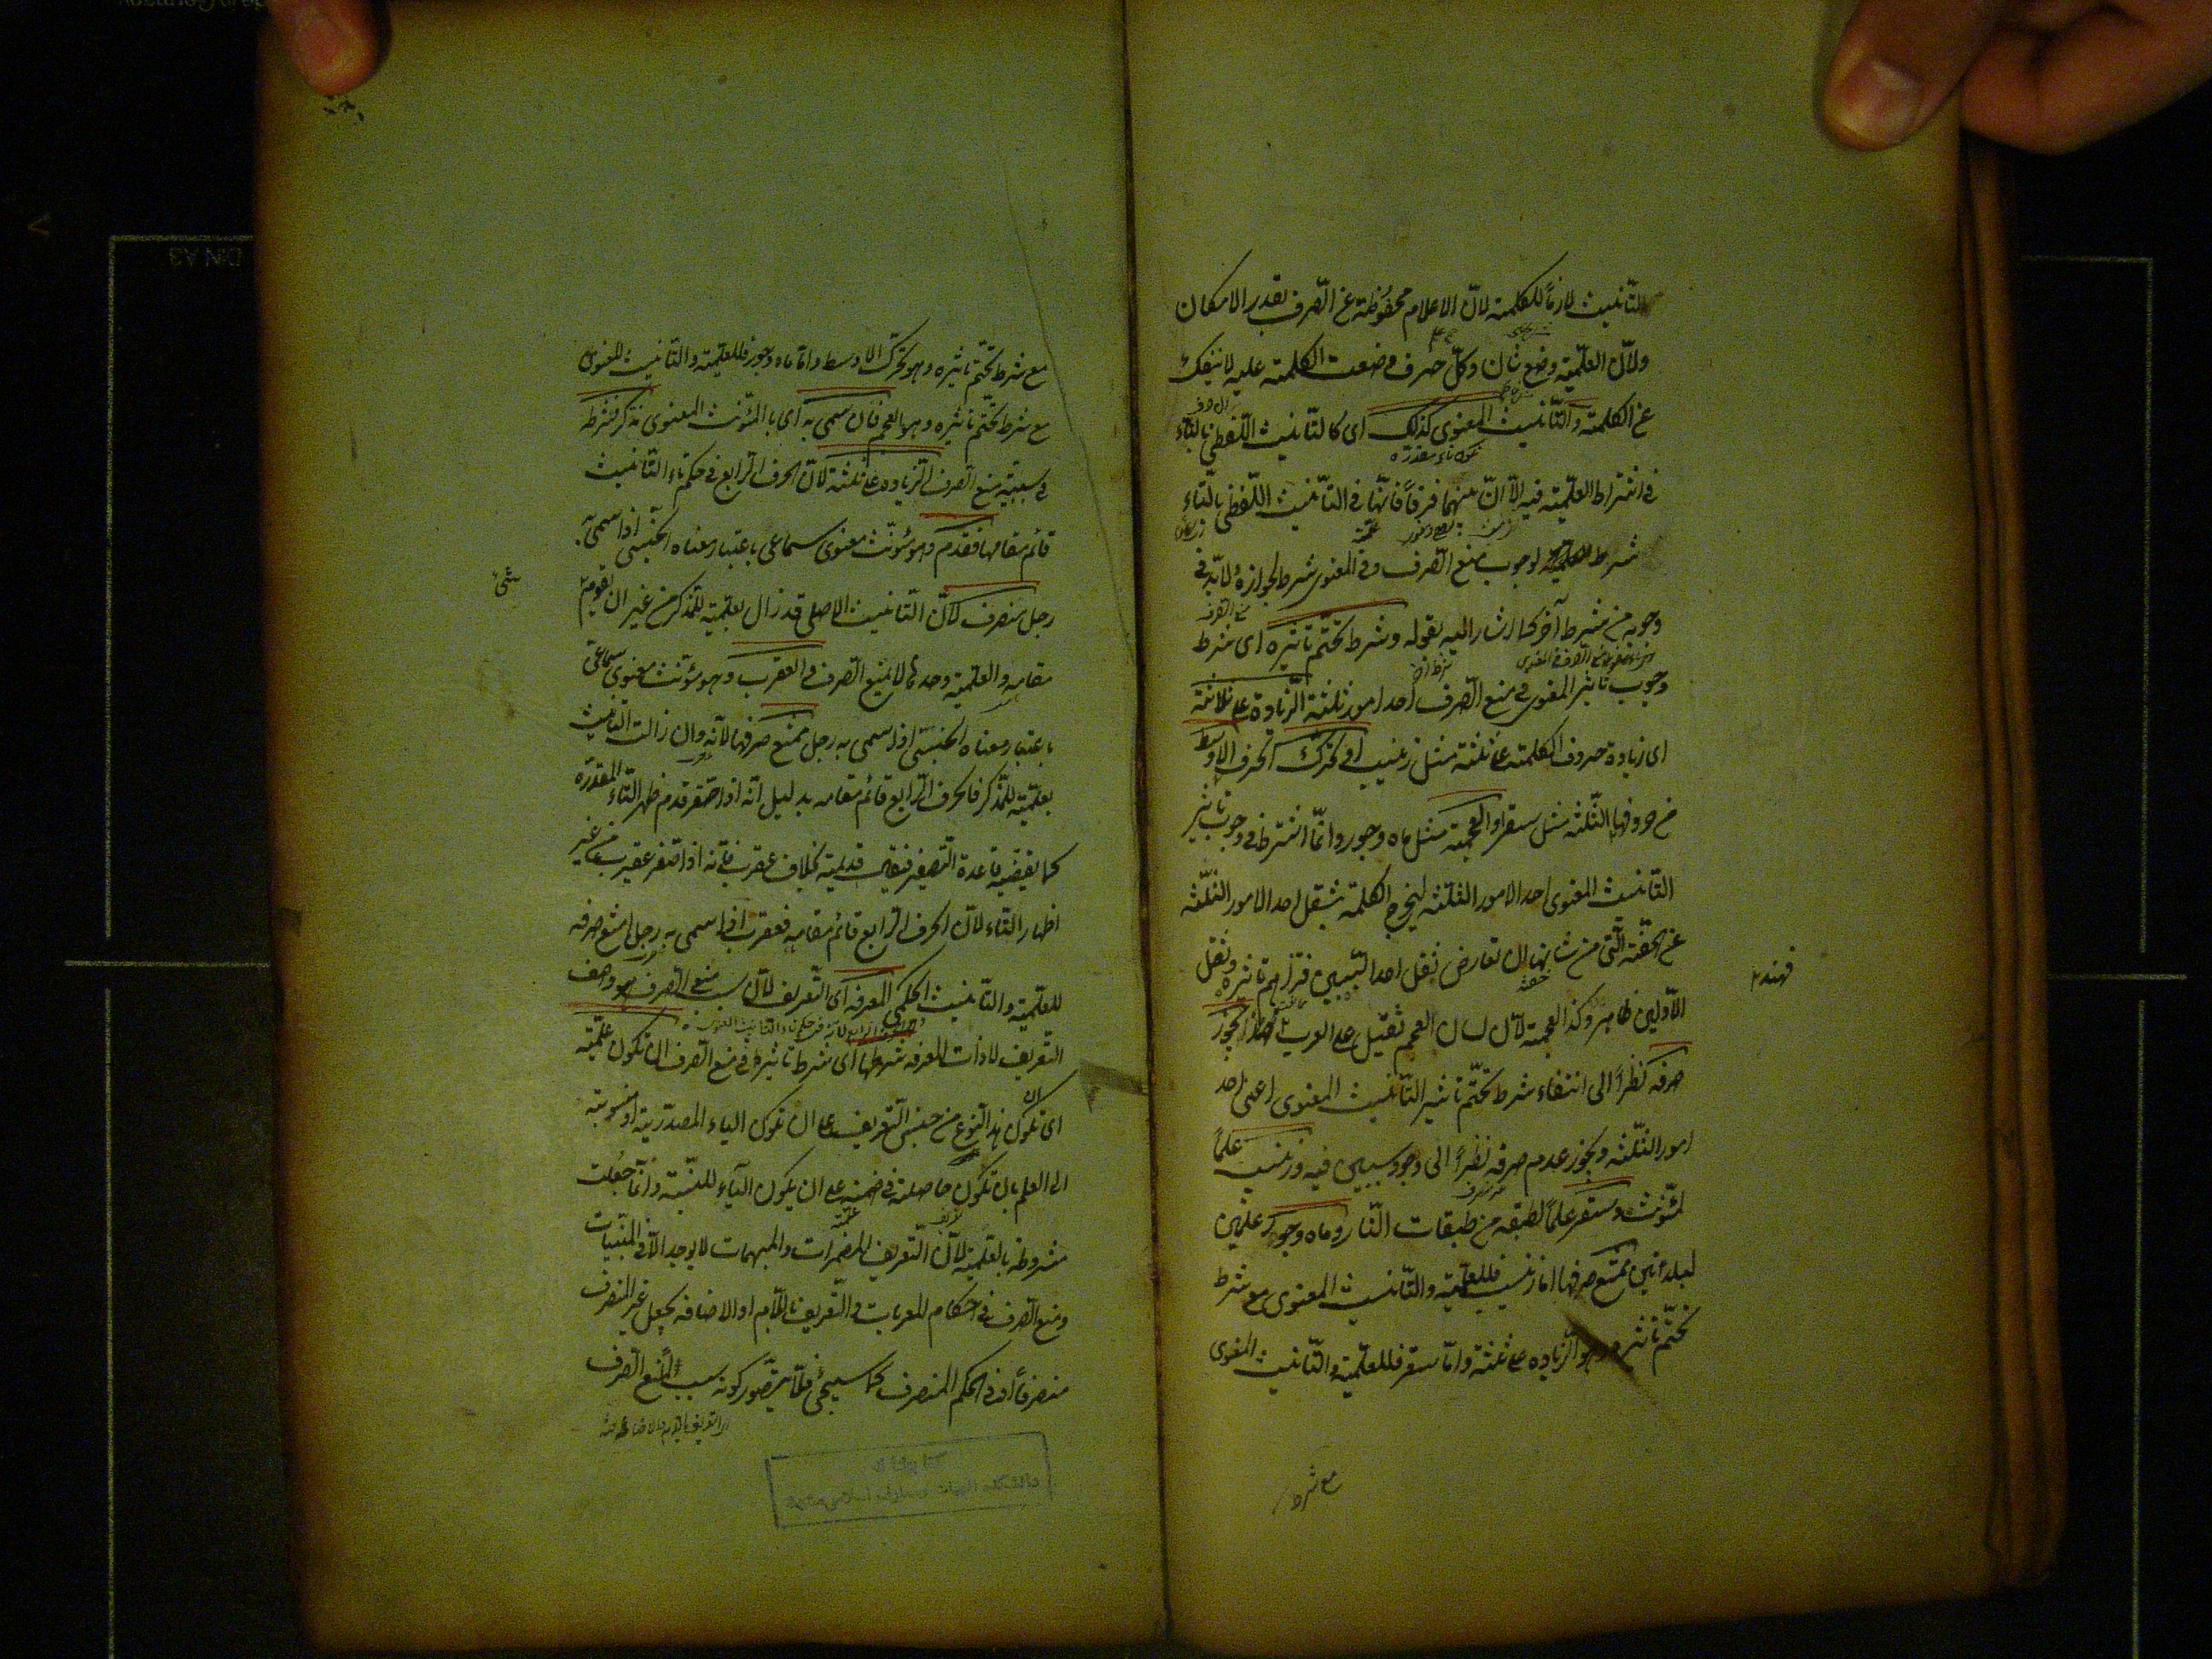 التّأنيث لازماً للكلمة لانّ الاعلام محفُوظة عن الصّرف بقدر الامكان
ولانّ العلميّة وضع ثان وكلّ حرف وضعت الكلمة عليه لا ينفكّ
عن الكلمة والتّأنيث المعنوى كذلك اى كالتّأنيث اللّفظى بالتّاء
فى اشتراط العلميّة فيه الّا انّ بينهما فرقاً فانّها فى التّأنيث اللّفظى بالتّاء
شرط لوجوب منع الصّرف وفى المعنوى شرط لجوازه ولابدّ فى
وجوبه من شرط آخر كما اشار اليه بقوله وشرط تحتّم تأثيره اى شرط
وجوب تأثير المعنوى فى منع الصّرف احد امور ثلثة الزّيادة على ثلاثة
اى زيادة حروف الكلمة على ثلثة مثل زينب او تحرّك الحرف الاوسط
من حروفها الثّلثة مثل سقر او العجمة مثل ماه وجور وانّما اشترط فى وجوب تأثير
التّأنيث المعنوى احد الامور الثلثة ليخرج الكلمة بثقل احد الامور الثّلثة
عن الخفّة الّتى من شانها ان تعارض ثقل احد السّببين فتزاحم تأثيره وثقل
الاوّلين ظاهر وكذا العجمة لانّ لسان العجم ثقيل على العرب فهند يجوز
صرفه نظراً الى انتفاء شرط تحتّم تأثير التّأنيث المعنوى اعنى احد
امور الثّلثة ويجوز عدم صرفه نظراً الى وجود سببين فيه وزينب علماً
لمؤنّث وسقر علماً لطبقة من طبقات النّار وماه وجور علمين
لبلدتين ممتنع صرفها امّا زينب فللعلميّة والتّأنيث المعنوى مع شرط
تحتّم تأثيره وهو الزّيادة على ثلثة وامّا سقر فللعلميّة والتّأنيث المعنوى
مع شرط
مع شرط تحتّم تأثيره وهو تحرّك الاوسط وامّا ماه وجور فللعلميّة والتّأنيث المعنوى
مع شرط تحتّم تأثيره وهو العجمة فان سمّى به اى بالمؤنّث المعنوى مذكّر فشرطه
فى سببيّة منع الصّرف الزّيادة على ثلثة لانّ الحرف الرّابع فى حكم تاء التّأنيث
قائم مقامها فقدم وهو مؤنّث معنوى سماعى باعتبار معناه الجنسى اذا سمّى به
رجل منصرف لانّ التّأنيث الاصلى قد زال بعلميّته للمذكّر من غير ان يقوم
شئ
مقامه والعلميّة وحدها لا يمنع الصّرف والعقرب وهو مؤنّث معنوى سماعى
باعتبار معناه الجنسى اذا سمّى به رجل ممتنع صرفها لانّه وان زالت التّأنيث
بعلميّته للمذكّر فالحرف الرّابع قائم مقامه بدليل انّه اذا صغّر قدم ظهر التّاء المقدّرة
كما يقتضيه قاعدة التّصغير فيقال قديمة بخلاف عقرب فانّه اذا صغّر عقيرب من غير
اظهار التّاء لانّ الحرف الرّابع قائم مقامه فعقرب اذا سمّى به رجل امتنع صرفه
للعلميّة والتّأنيث الحكمى المعرفة اى التّعريف لانّ سبب منع الصّرف هو وصف
التعريف لا ذات المعرفة شرطها اى شرط تأثيرها فى منع الصّرف ان تكون علميّة
اى تكون هذا النّوع من جنس التّعريف على ان تكون الياء المصدريّة او منسوبة
الى العلم بان تكون حاصلة فى ضمنه على ان يكون الياء للنّسبة وانّما جعلت
مشروطة بالعلميّة لانّ التّعريف المضمرات والمبهمات لا يوجد الّا فى المبنيّات
ومنع الصّرف فى احكام المعربات والتّعريف باللّام او الاضافة يجعل غير المنصرف
منصرفاً او فى حكم المنصرف كما سيجئ فلا يتصوّر كونه سبباً لمنع الصّرف